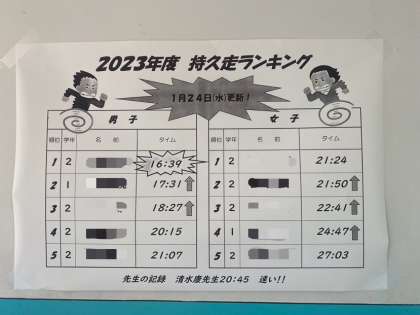 2023年度 持久走ランキング
1月24日(水)更新!
男 子
順位 学年 名 前 タイム
1 2 16:39
2 1 17:31
3 2 18:27
4 2 20:15
5 2 21:07
女 子
順位 学年 名 前 タイム
1 2 21:24
2 2 21:50
3 2 22:41
4 1 24:47
5 2 27:03
先生の記録 清水康先生20:45 速い!!